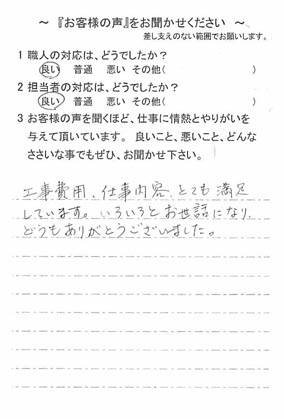 ～『お客様の声』をお聞かせください～
差し支えのない範囲でお願いします。
1 職人の対応は、どうでしたか？
良い 普通 悪い その他( )
2 担当者の対応は、どうでしたか？
良い 普通 悪い その他( )
3 お客様の声を聞くほど、仕事に情熱とやりがいを
与えて頂いています。良いこと、悪いこと、どんな
ささいな事でもぜひ、お聞かせ下さい。
工事費用、仕事内容、とても満足
しています。いろいろとお世話になり、
どうもありがとうございました。